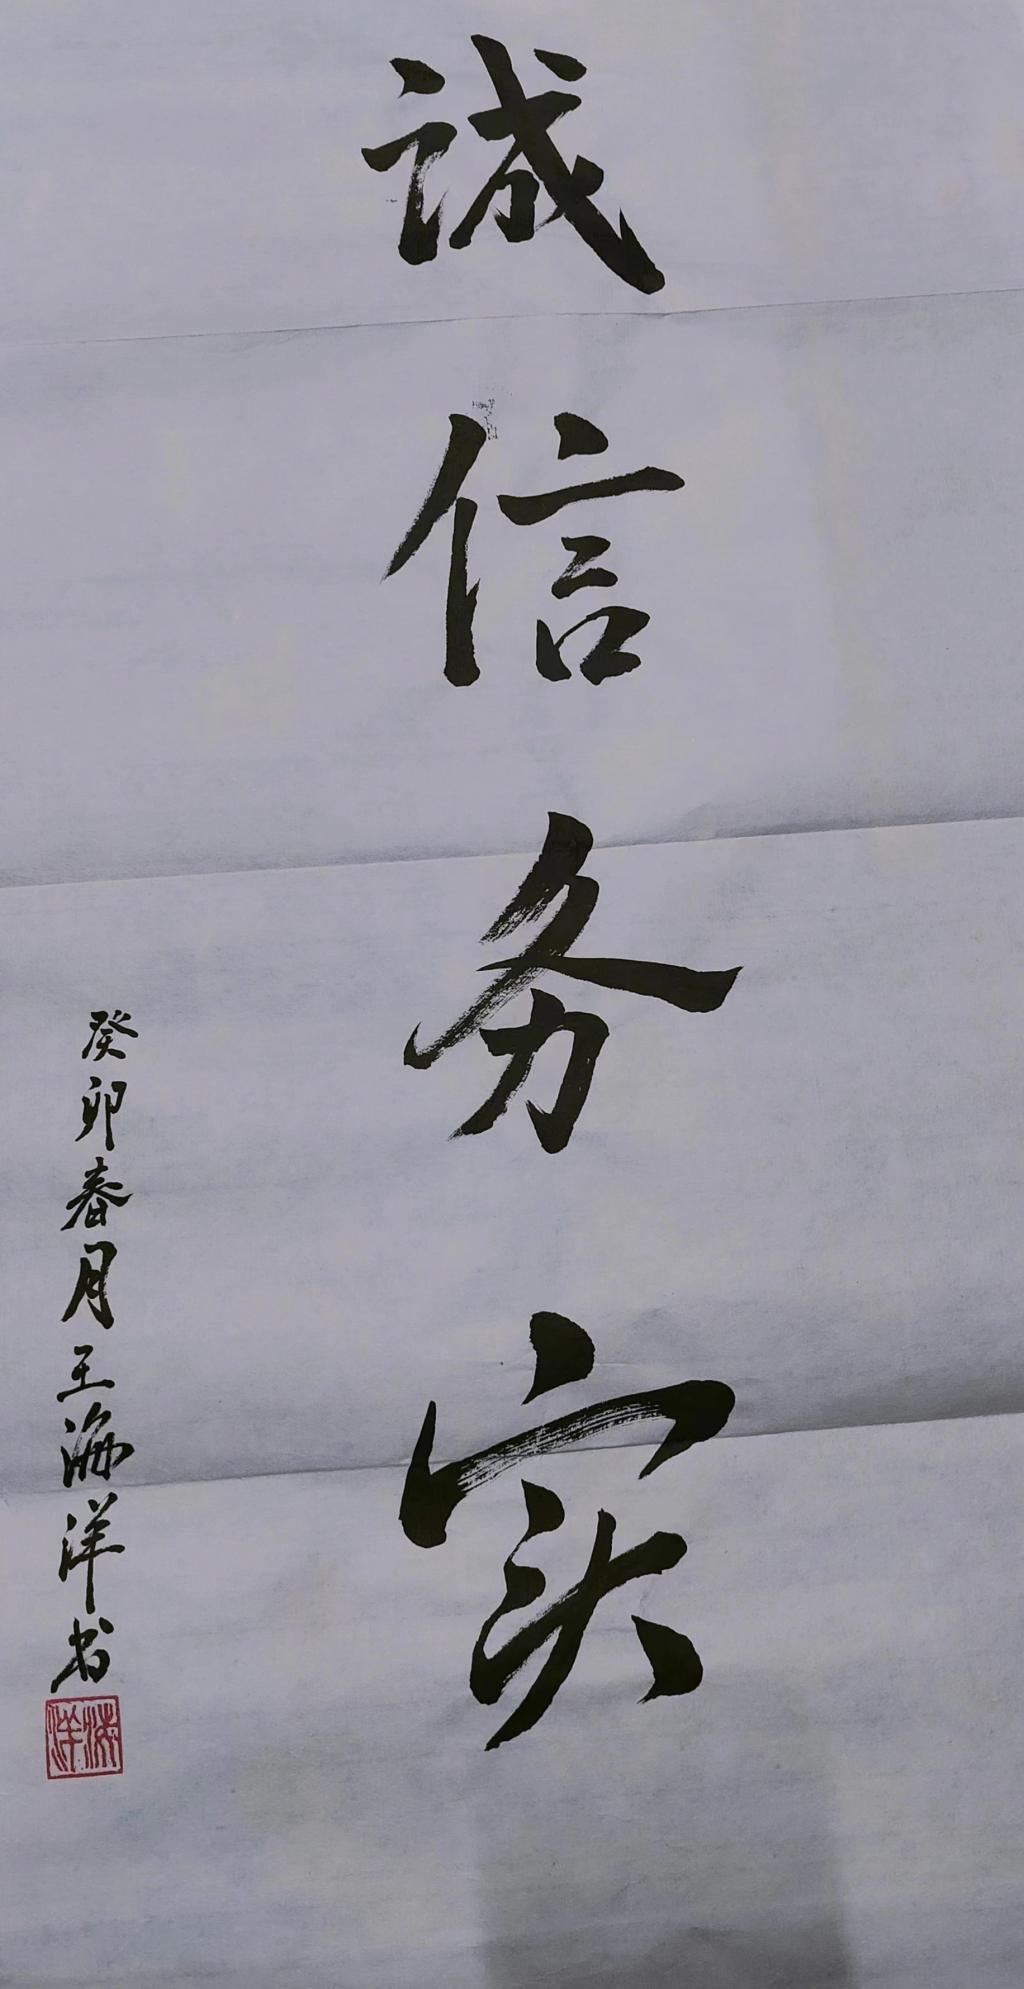 诚信务实
癸卯春月王海洋书
海洋